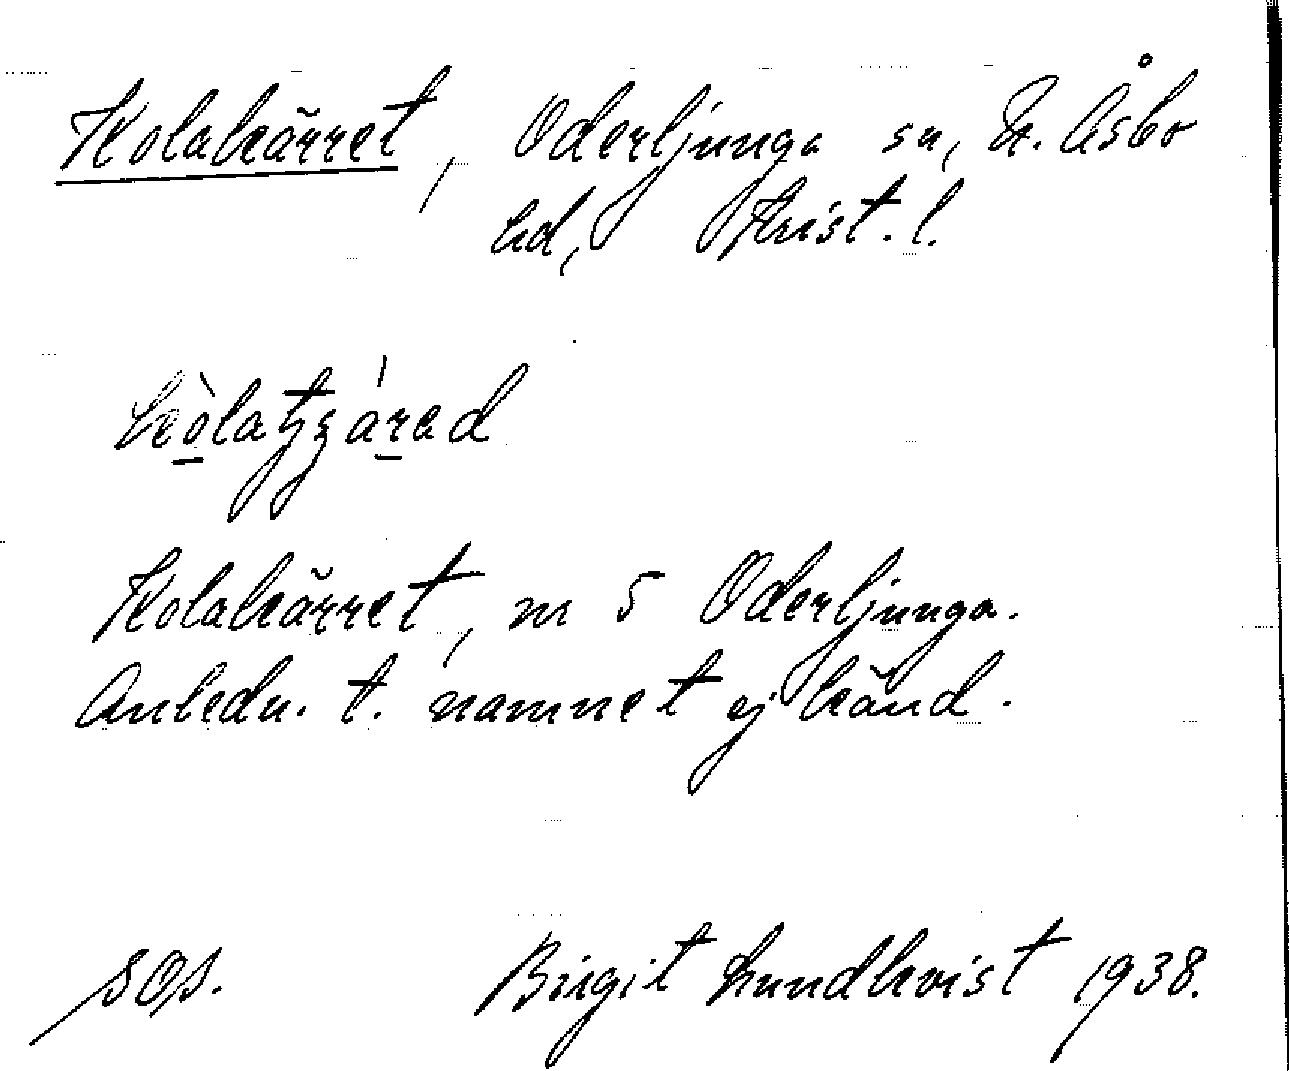 Kolakärret, Oderljunga sn, N. Åsbo
hd, Krist. l.
kòlatʒárad
Kolakärret, nr 5 Oderljunga.
Anledn. t. namnet ej känd.
SOS. Birgit Lundkvist 1938.